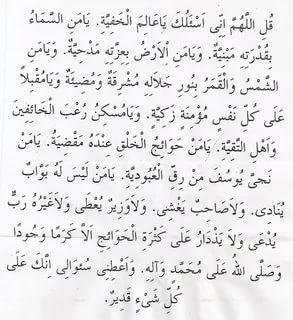 قُلِ اللَّهُمَّ اِنِّى اَسْئَلُكَ يَاعَالِمَ الْخَفِيَّةِ. يَامَنِ السَّمَاءُ
بِقُدْرَتِهِ مَبْنِيَّةٌ. وَيَامَنِ اْلاَرْضُ بِعِزَّتِهِ مَدْحِيَّةٌ. وَيَامَنِ
الشَّمْسُ وَالْقَمَرُ بِنُورِ جَلاَلِهِ مُشْرِقَةٌ وَمُضِيئَةٌ وَيَامُقْبِلاً
عَلَى كُلِّ نَفْسٍ مُؤْمِنَةٍ زَكِيَّةٍ. وَيَامُسَكِّنُ رُعْبَ الْخَائِفِينَ
وَاَهْلِ التَّقِيَّةِ. يَامَنْ حَوَائِجُ الْخَلْقِ عِنْدَهُ مَقْضِيَةُ. يَامَنْ
نَجىَّ يُوسُفَ مِنْ رِقِّ الْعُبُودِيَّةِ. يَامَنْ لَيْسَ لَهُ بَوَّابٌ
يُنَادى. وَلاَصَاحِبٌ يَغْشى. وَلاَوَزِيرٌ يُعْطى وَلاَغَيْرُهُ رَبٌّ
يُدْعَى وَلاَ يَذْدَارُ عَلَى كَثْرَةِ الْحَوَائِجِ اَلاَّ كَرَمًا وَجُودًا
وَصَلَّى اللهُ عَلَى مُحَمَّدٍ وَآلِهِ. وَاَعْطِنِى سُئوَالِى اِنَّكَ عَلَى
كُلِّ شَىْءٍ قَدِيرٌ.